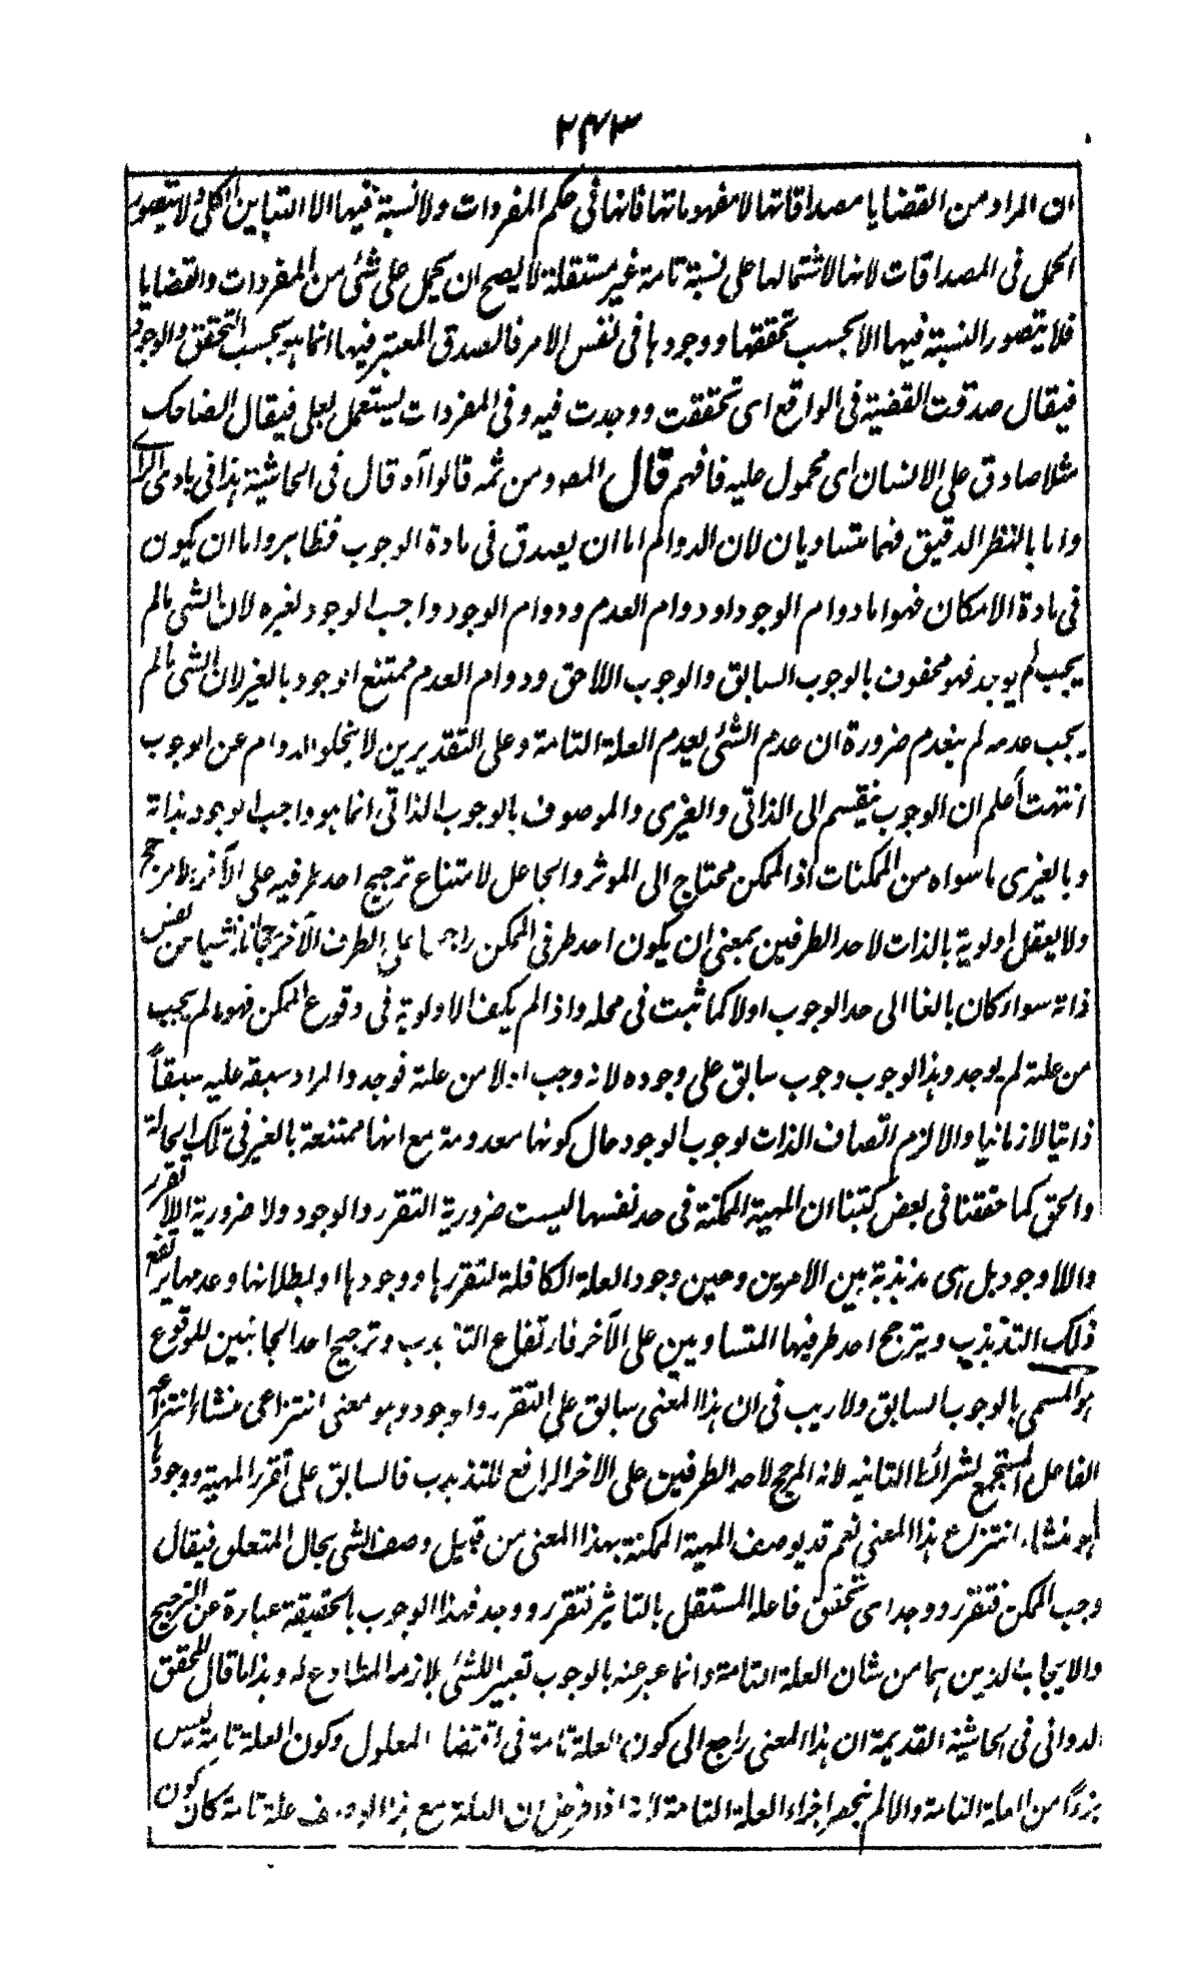 ٢٤٣
ان المراد من القضايا مصداقاتها لا مفهوماتها فانها فى حكم المفردات ولا نسبة فيها الا التباين الكلى ولا يتصور
الحمل فى المصداقات لانها لاشتمالها على نسبة تامة غير مستقلة لا يصح ان يحمل على شئ من المفردات والقضايا
فلا يتصور النسبة فيها الا بحسب تحققها ووجودها فى نفس الامر فالصدق المعتبر فيها انما هو بحسب التحقق والوجود
فيقال صدقت القضية فى الواقع اى تحققت ووجدت فيه وفى المفردات يستعمل بعلى فيقال الضاحك
مثلا صادق على الانسان اى محمول عليه فافهم قال المص ومن ثمه قالوا آه قال فى الحاشية هذا فى بادى الراى
واما بالنظر الدقيق فهما متساويان لان الدوام اما ان يصدق فى مادة الوجوب فظاهر واما ان يكون
فى مادة الامكان فهو اما دوام الوجود او دوام العدم ودوام الوجود واجب الوجود لغيره لان الشئ ما لم
يجب لم يوجد فهو محفوف بالوجوب السابق والوجوب اللاحق ودوام العدم ممتنع الوجود بالغير لان الشئ ما لم
يجب عدمه لم ينعدم ضرورة ان عدم الشئ لعدم العلة التامة وعلى التقديرين لا يخلو الدوام عن الوجوب
انتهت أعلم ان الوجوب ينقسم الى الذاتى والغيرى والموصوف بالوجوب الذاتى انما هو واجب الوجود بذاته
وبالغيرى ما سواه من الممكنات اذ الممكن محتاج الى الموثر والجاعل لامتناع ترجيح احد طرفيه على الآخر بلا مرجح
ولا يعقل اولوية بالذات لاحد الطرفين بمعنى ان يكون احد طرفى الممكن راجحا على الطرف الآخر رجحانا ناشيا من نفس
ذاته سواء كان بالغا الى حد الوجوب اولا كما ثبت فى محله واذا لم يكف الاولوية فى وقوع الممكن فهو ما لم يجب
من علته لم يوجد وهذا الوجوب وجوب سابق على وجوده لانه وجب اولا من علته فوجد والمراد سبقه عليه سبقاً
ذاتيا لا زمانيا والا لزم اتصاف الذات لوجوب الوجود حال كونها معدومة مع انها ممتنعة بالغير فى تلك الحالة
والحق كما حققنا فى بعض كتبنا ان المهية الممكنة فى حد نفسها ليست ضرورية التقرر والوجود ولا ضرورية اللا تقرر
واللا وجود بل هى مذبذبة بين الامرين وحين وجود العلة الكافلة لتقررها ووجودها او لبطلانها وعدمها يرتفع
ذلك التذبذب ويترجح احد طرفيها المتساويين على الآخر فارتفاع التذبذب وترجيح احد الجانبين للوقوع
هو المسمى بالوجوب السابق ولا ريب فى ان هذا المعنى سابق على التقرر والوجود وهو معنى انتزاعى منشاء انتزاعه
الفاعل المستجمع لشرائط التاثير لانه المرجح لاحد الطرفين على الاخر الرافع للتذبذب فالسابق على تقرر المهية ووجودها
هو منشاء انتزاع هذا المعنى نعم قد يوصف المهية الممكنة بهذا المعنى من قبيل وصف الشئ بحال المتعلق فيقال
وجب الممكن فتقرر ووجد اى تحقق فاعله المستقل بالتاثير فتقرر ووجد فهذا الوجوب بالحقيقة عبارة عن الترجيح
والايجاب الذين هما من شان العلة التامة وانما عبر عنه بالوجوب تعبيرا للشئ بلازمه المطاوع له وبذا ما قال المحقق
الدوانى فى الحاشية القديمة ان هذا المعنى راجع الى كون العلة تامة فى اقتضاء المعلول وكون العلة تامة ليس
جزءًا من العلة التامة والا لم ينحصر اجزاء العلة التامة لانه اذا فرض ان العلة مع هذا الوصف علة تامة كان كون